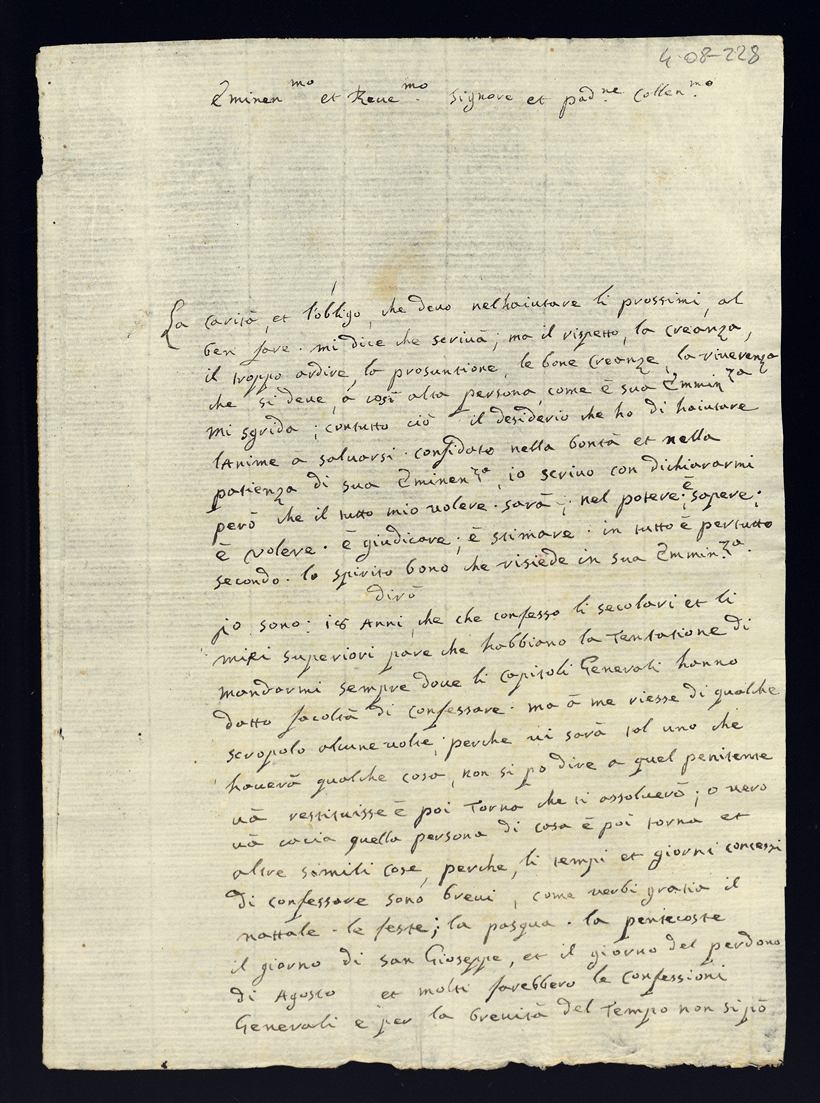 4-08-228
Eminen.mo et Reue.mo Signore et pad.ne Collen.mo
La carità, et l'obligo, che deuo nelhaiutare li prossimi, al
ben fare. mi dice che scriuà; ma il rispetto, la creanza,
il troppo ardire, la prosuntione, le bone creanze, la riuerenza
che si deue, à così alta persona, come è sua Emmin.za
mi sgrida; contutto ciò il desiderio che ho di haiutare
lAnime a saluarsi. confidato nella bontà et nella
patienza di sua Eminen.za, io scriuo con dichiararmi
però che il tutto mio uolere. sarà; nel potere; è sapere;
è volere. è giudicare; è stimare. in tutto è pertutto
secondo. lo spirito bono che risiede in sua Emmin.za.
dirò
io sono: 18 Anni, che che confesso li secolari et li
miei superiori pare che habbiano la Tentatione di
mandarmi sempre doue li Capitoli Generali hanno
datto facoltà di confessare. ma à me riesse di qualche
scropolo alcune uolte; perche ui sarà tal uno che
hauerà qualche cosa, non si po dire a quel penitente
uà restituisse è poi Torna che ti assoluerò; o uero
uà cacia quella persona di casa è poi torna et
altre simili cose, perche, li tempi et giorni concessi
di confessare sono breui, come uerbi gratia il
nattale. le feste; la pasqua. la pentecoste
il giorno di san Gioseppe, et il giorno del perdono
di Agosto et molti farebbero le Confessioni
Generali e per la breuità del Tempo non si pò